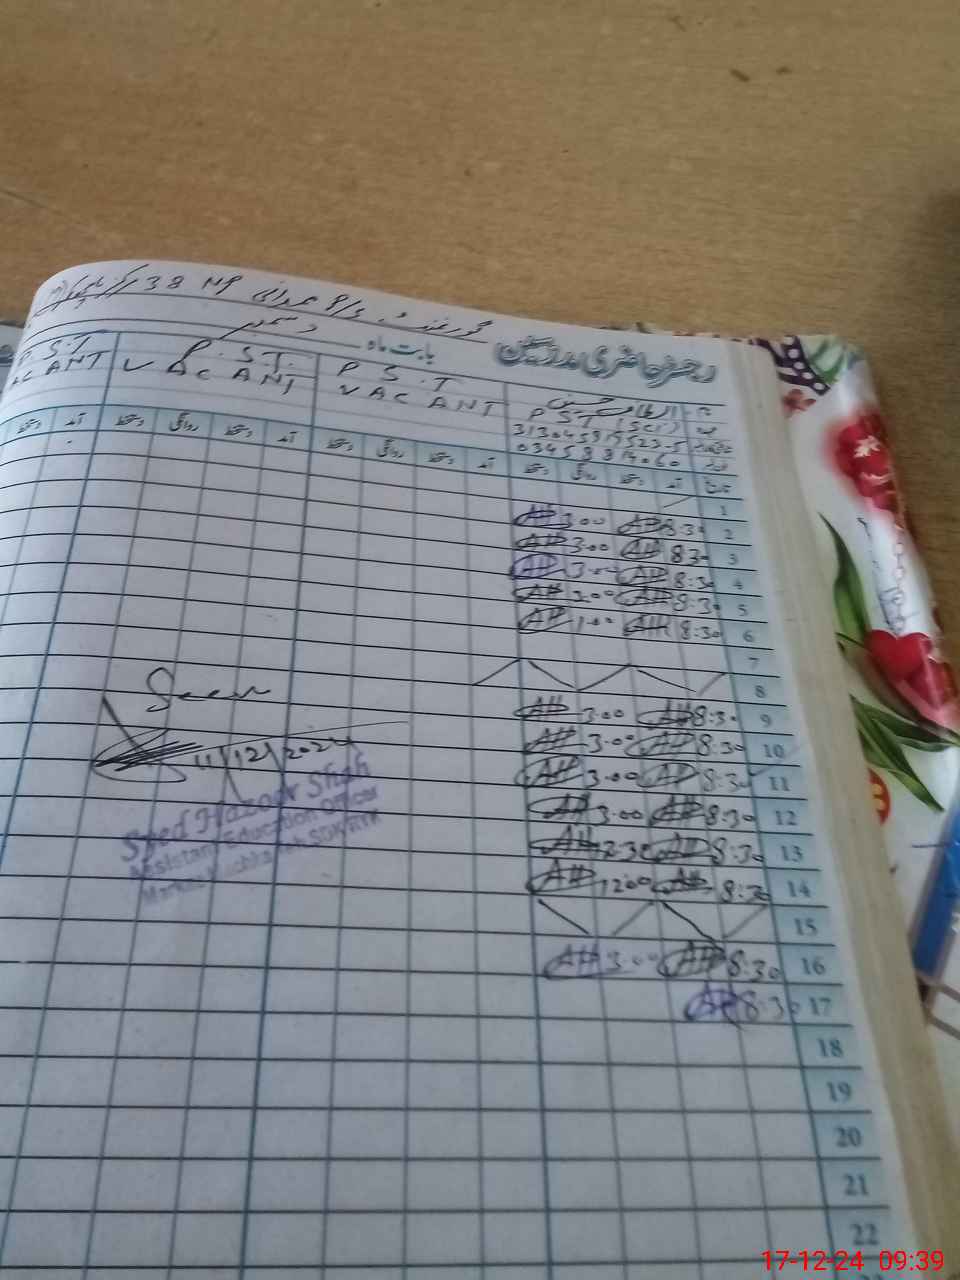 گورنمنٹ P/S 38 NP
رجسٹر حاضری مدرسین بابت ماہ دسمبر
نام الطاف حسین
P.S.T VACANT
P.S.T. VACANT
P.S.T
عہدہ PST (Sci)
تاریخ آمد دستخط روانگی دستخط آمد دستخط روانگی دستخط آمد دستخط روانگی دستخط آمد دستخط
1
2 8:30 AH 3.00 AH
3 8:30 AH 3.00 AH
4 8:30 AH 3.00 AH
5 8:30 AH 3.00 AH
6 8:30 AH 1.00 AH
7
8
9 8:30 AH 3.00 AH
10 8:30 AH 3.00 AH
11 8:30 AH 3.00 AH
12 8:30 AH 3.00 AH
13 8:30 AH 2.30 AH
14 8:30 AH 12.00 AH
15
16 8:30 AH 3.00 AH
17 8:30 AH
18
19
20
21
22
Seen
11/12/2024
Syed Hazoor Shah
Assistant Education Officer
Markaz SDK RYK
17-12-24 09:39